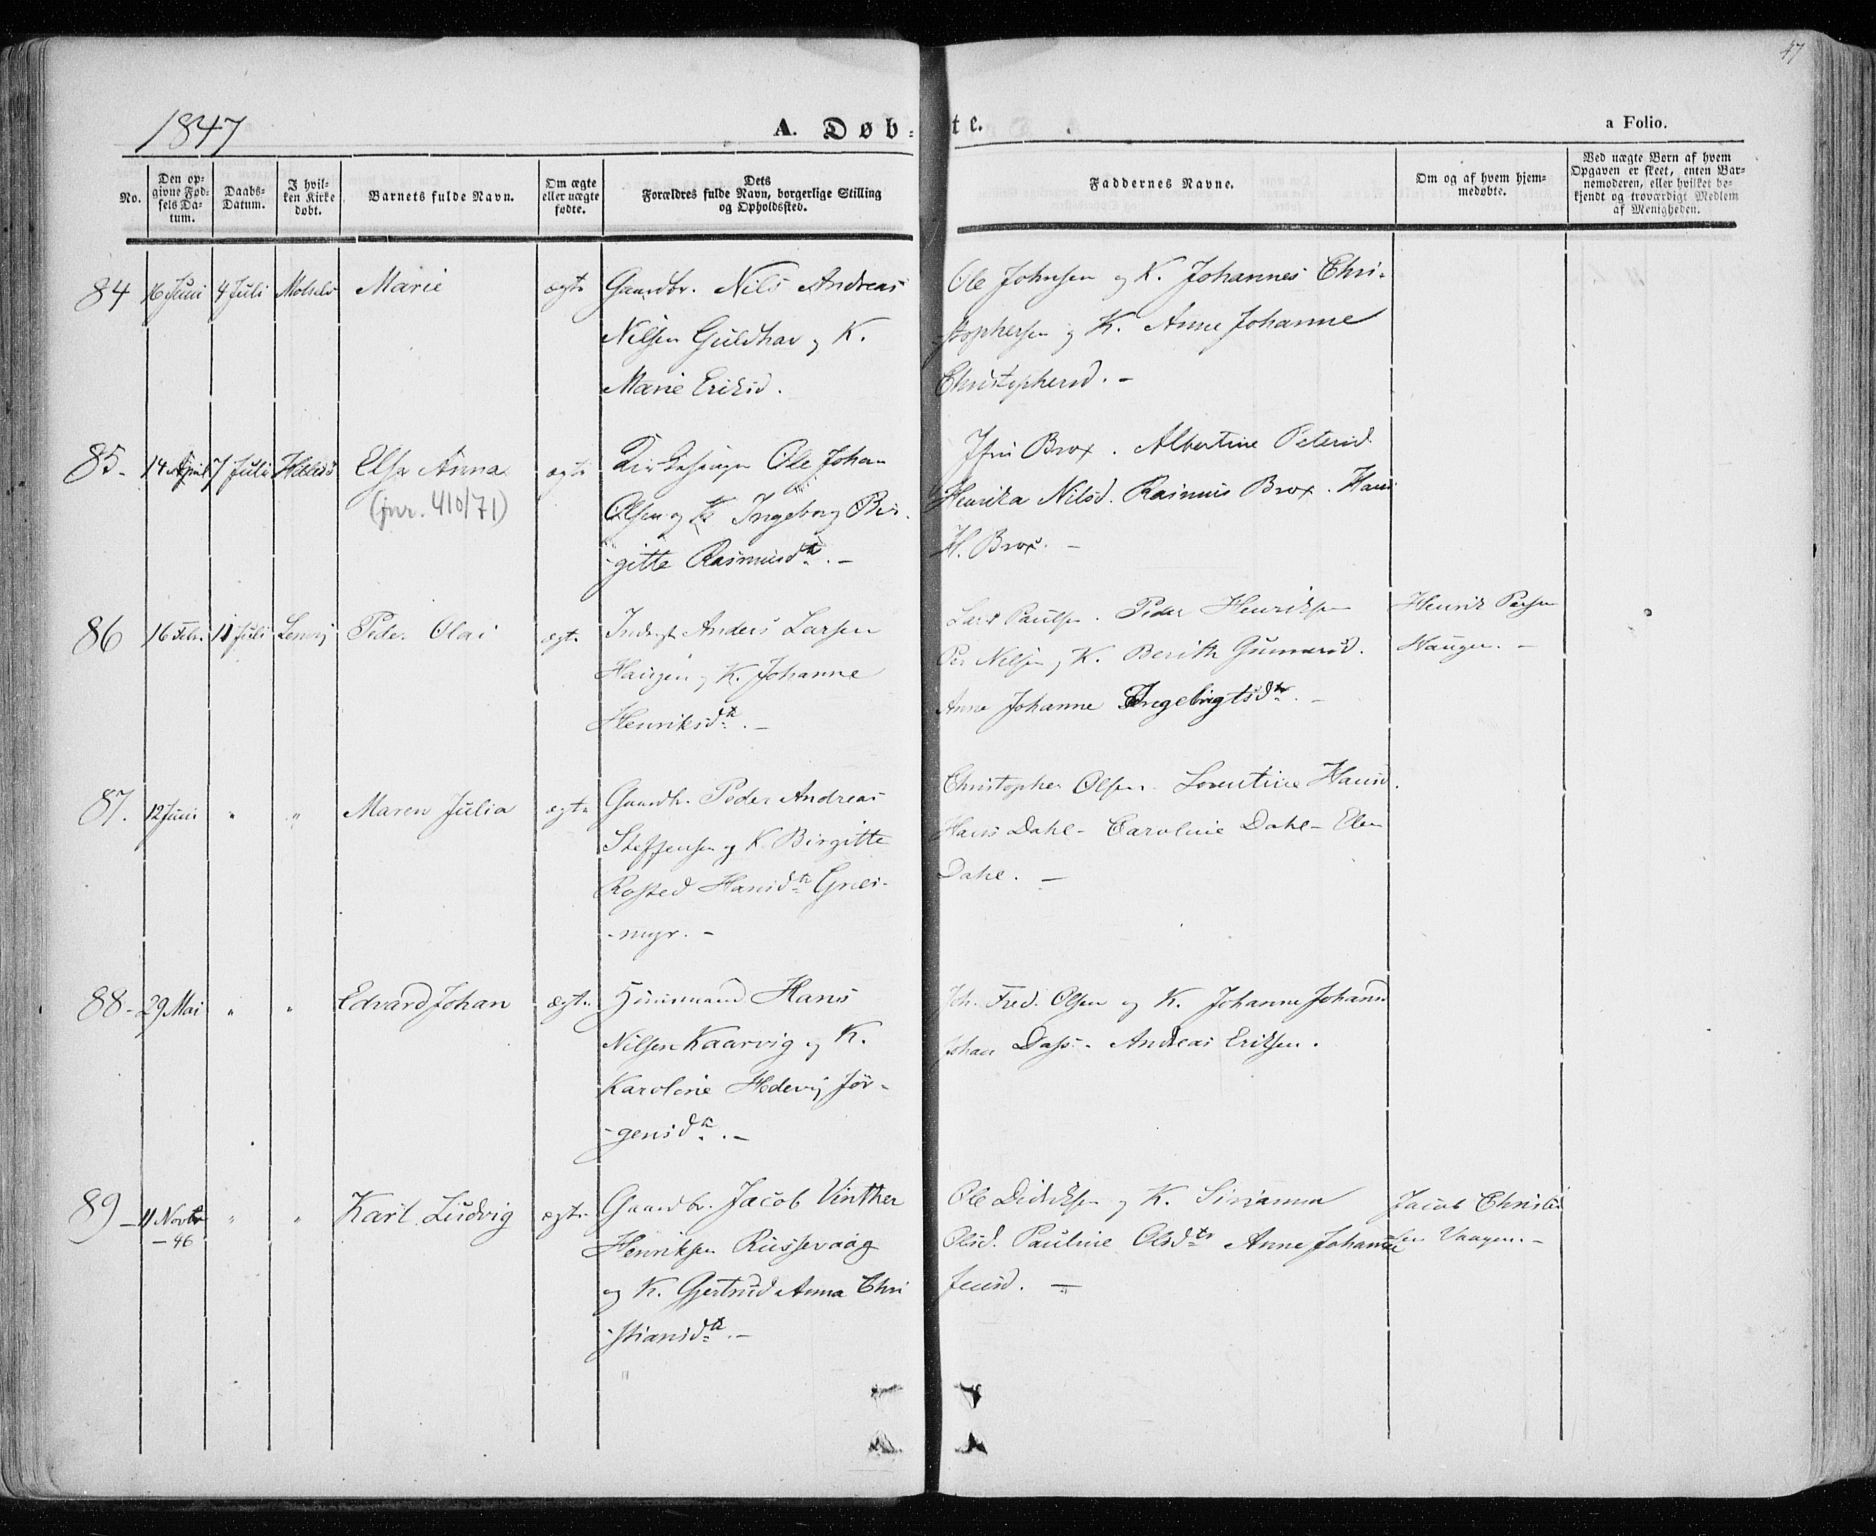 47
1847
A. Døb-
te.
a Folio.
No.
Den op-
givne Fød-
sels Da-
tum.
Daabs-
Datum.
I hvil-
ken Kirke
døbt.
Barnets fulde Navn.
Om ægte
eller uægte
fødte.
Dets
Forældres fulde Navn, borgerlige Stilling
og Opholdssted.
Faddernes Navne.
Om og af hvem hjem-
medøbte.
Ved uægte Børn af hvem
Opgaven er skeet, enten Bar-
nemoderen, eller hvilket be-
kjendt og troværdigt Medlem
af Menigheden.
84 16 Juni 4 Juli Molselv Marie ægte Gaardbr. Nils Andreas
Nilsen Guldhav og K.
Marie Eriksd.
Ole Johnsen og K. Johannes Chri-
stophersen og K. Anne Johanne
Christophersd. -
85- 14 April 7 Juli Hillesø Elsa Anna ægte Kirkesanger Ole Johan
(jnr. 410/71)
Olsen og K Ingeborg Bir-
-gitte Rasmusdtr. -
Jfru Brox. Albertine Petersd.
Henrika Nilsd. Rasmus Brox. Hans
H. Brox. -
86 16 Febr. 11 Juli Lenvig Peder Olai ægte Inds Anders Larsen
Haugen og K. Johanne
Henriksdtr. -
Lars Paulsen. Peder Henriksen
Per Nilsen og K. Berith Gunnersd.
Anne Johanne Ingebrigtsdtr. -
Henrik Persen
Haugen. -
87. 12 Juni " " Maren Julia ægte Gaardbr. Peder Andreas
Steffensen og K. Birgitte
Rosted Hansdtr Gres-
-myr. -
Christopher Olsen. Lorentine Hansd.
Hans Dahl - Caroline Dahl - Elen
Dahl. -
88- 29 Mai " " Edvard Johan ægte Huusmand Hans
Nilsen Kaarvig og K.
Karoline Hedevig Jør-
-gensdtr. -
Joh. Fred. Olsen og K. Johanne Johansd
Johan Dass. Andreas Eriksen.
89- 11 Novbr Karl Ludvig ægte Gaardbr. Jacob Vinther
- 46 " "
Henriksen Russevaag
og K. Gjertrud Anna Chri
-stiansdtr. -
Ole Didriksen og K. Sirianna
Olsd. Pauline Olsdtr Anne Johanne
Jensd. -
Jacob Christian
sen Vaagen. -